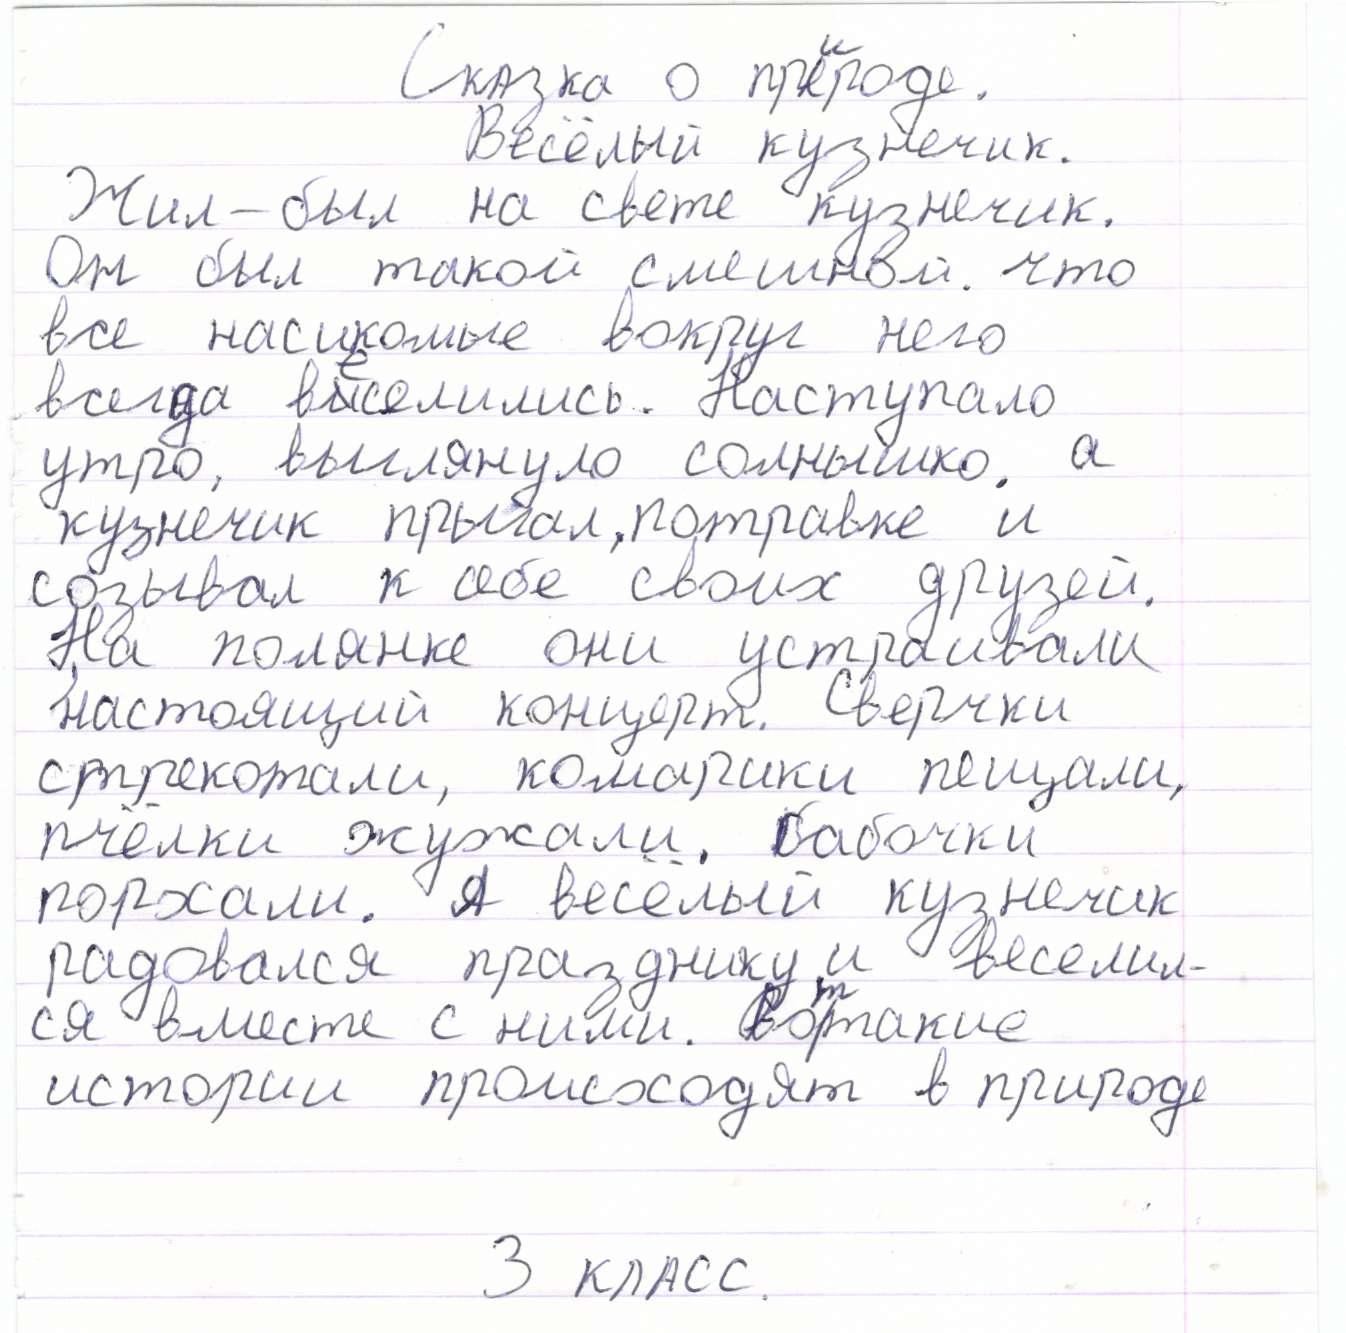 Сказка о природе.
Весёлый кузнечик.
Жил-был на свете кузнечик.
Он был такой смешной. что
все насикомые вокруг него
всегда веселились. Наступало
утро, выглянуло солнышко, а
кузнечик прыгал, потравке и
созывал к себе своих друзей.
На полянке они устраивали
настоящий концерт. Сверчки
стрекотали, комарики пещали,
пчёлки жужжали. Бабочки
порхали. А весёлый кузнечик
радовался празднику и веселил-
ся вместе с ними. Вот такие
истории происходят в природе
3 класс.